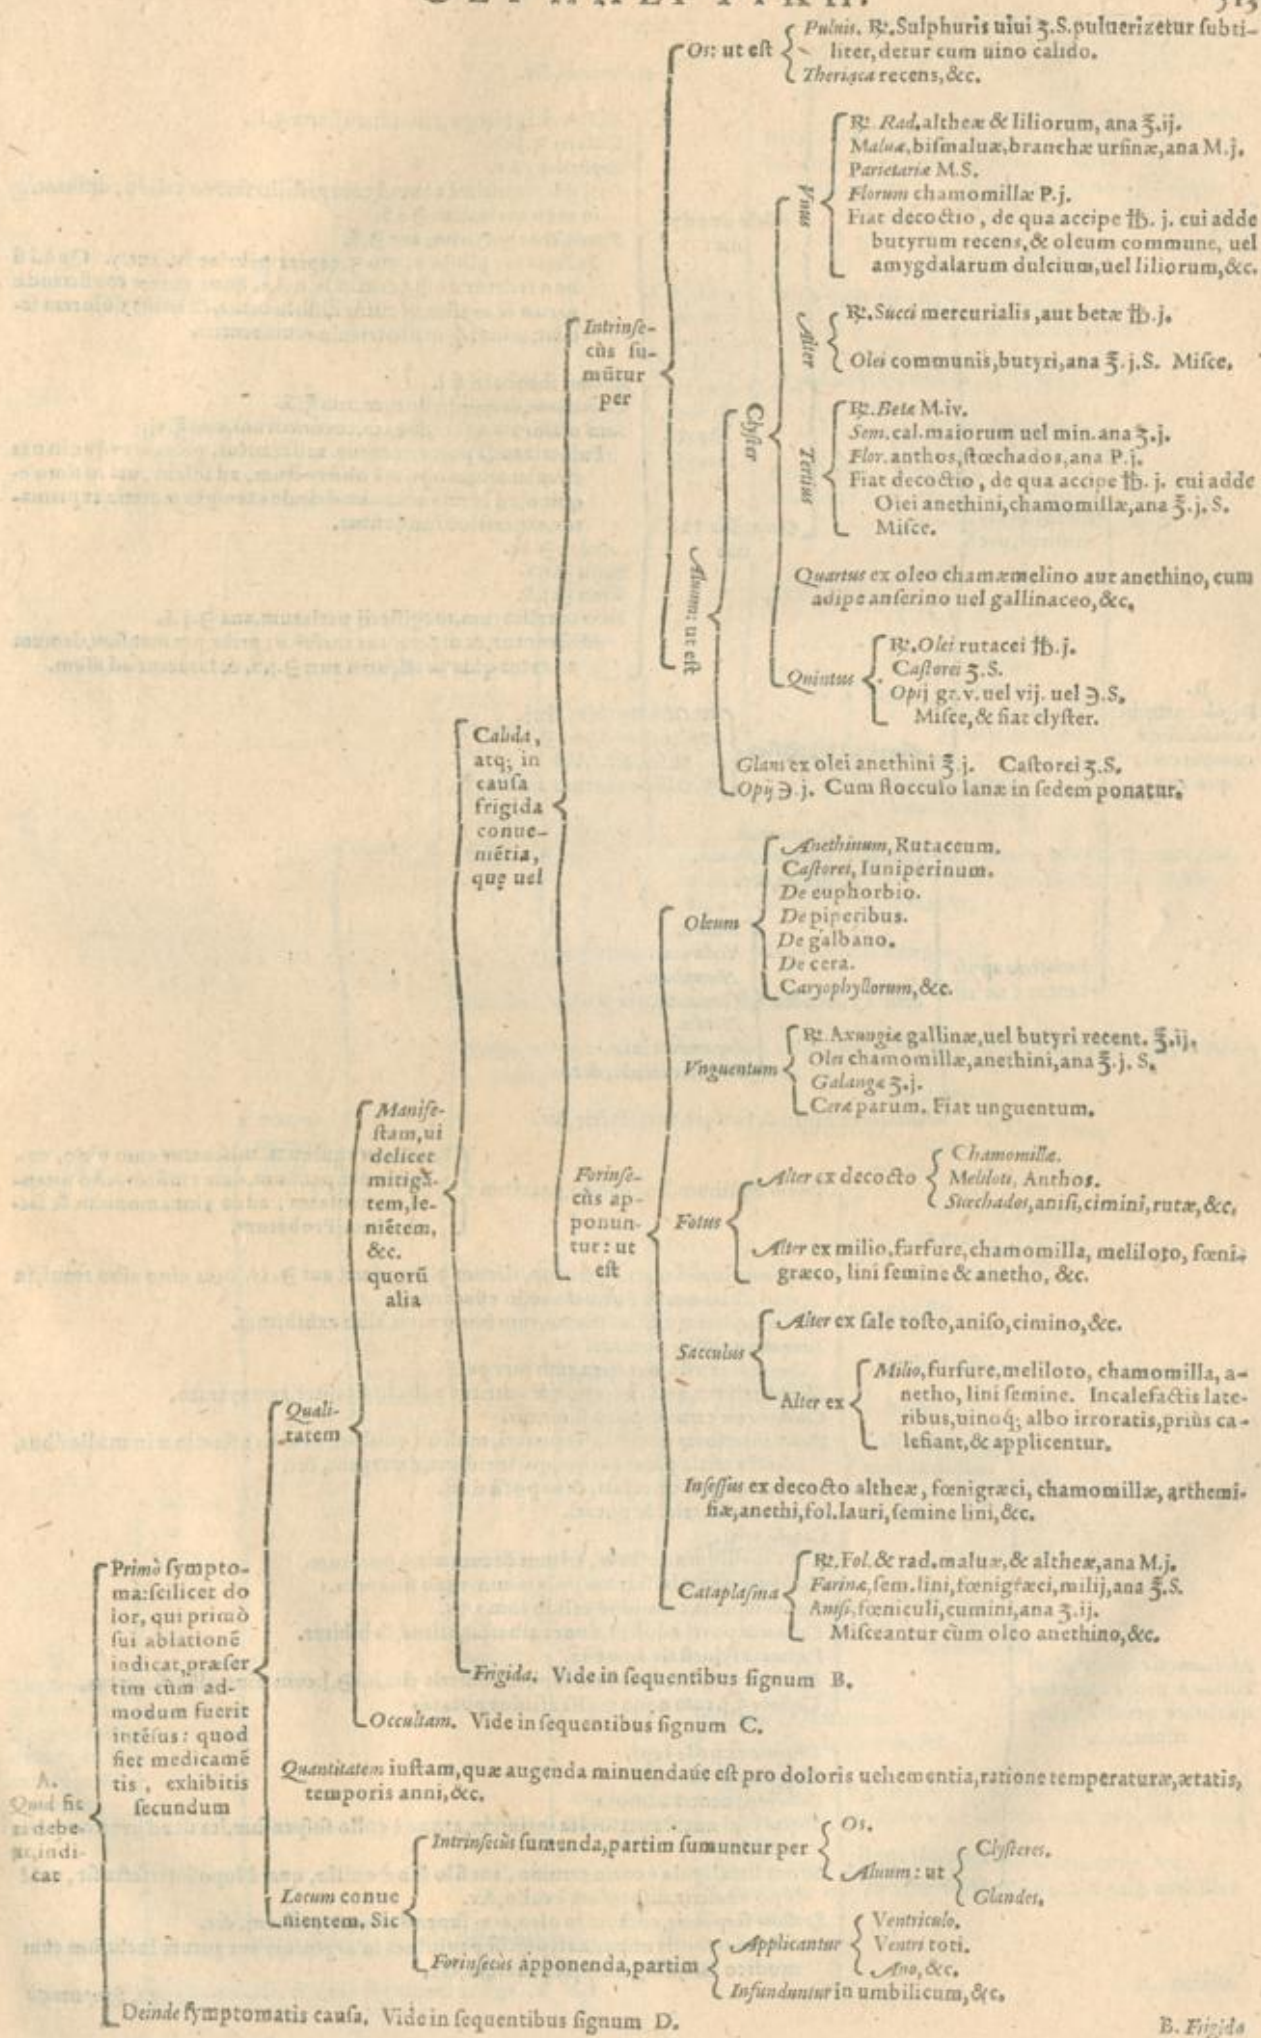 513
Os: ut est
Pulvis. ℞. Sulphuris uiui ʒ.S. puluerizetur subti-
liter, detur cum uino calido.
Theriaca recens, &c.
Intrinse-
cùs su-
mūtur
per
Aluum: ut est
Clyster
Vnus
℞. Rad. altheæ & liliorum, ana ℥.ij.
Maluæ, bismaluæ, branchæ ursinæ, ana M.j.
Parietariæ M.S.
Florum chamomillæ P.j.
Fiat decoctio, de qua accipe ℔. j. cui adde
butyrum recens, & oleum commune, uel
amygdalarum dulcium, uel liliorum, &c.
Alter
℞. Succi mercurialis, aut betæ ℔.j.
Olei communis, butyri, ana ℥.j.S. Misce.
Tertius
℞. Betæ M.iv.
Sem. cal. maiorum uel min. ana ʒ.j.
Flor. anthos, stœchados, ana P.j.
Fiat decoctio, de qua accipe ℔. j. cui adde
Olei anethini, chamomillæ, ana ℥.j. S.
Misce.
Quartus ex oleo chamæmelino aut anethino, cum
adipe anserino uel gallinaceo, &c.
Quintus
℞. Olei rutacei ℔.j.
Castorei ʒ.S.
Opij gr.v. uel vij. uel ℈.S.
Misce, & fiat clyster.
Glans ex olei anethini ℥.j. Castorei ʒ.S.
Opij ℈.j. Cum flocculo lanæ in sedem ponatur.
Calida,
atq; in
causa
frigida
conue-
niētia,
quę uel
Oleum
Anethinum, Rutaceum.
Castorei, Iuniperinum.
De euphorbio.
De piperibus.
De galbano.
De cera.
Caryophyllorum, &c.
Vnguentum
℞. Axungiæ gallinæ, uel butyri recent. ℥.ij.
Olei chamomillæ, anethini, ana ℥.j. S.
Galangæ ʒ.j.
Ceræ parum. Fiat unguentum.
Manife-
stam, ui
delicet
mitigā-
tem, le-
niētem,
&c.
quorū
alia
Forinse-
cùs ap-
ponun-
tur: ut
est
Fotus
Alter ex decocto
Chamomillæ.
Meliloti, Anthos.
Stœchados, anisi, cimini, rutæ, &c.
Alter ex milio, furfure, chamomilla, meliloto, fœni-
græco, lini semine & anetho, &c.
Sacculus
Alter ex sale tosto, aniso, cimino, &c.
Alter ex
Milio, furfure, meliloto, chamomilla, a-
netho, lini semine. Incalefactis late-
ribus, uinoq; albo irroratis, priùs ca-
lefiant, & applicentur.
Quali-
tatem
Insessus ex decocto altheæ, fœnigræci, chamomillæ, arthemi-
siæ, anethi, fol. lauri, semine lini, &c.
Cataplasma
℞. Fol. & rad. maluæ, & altheæ, ana M.j.
Farinæ, sem. lini, fœnigræci, milij, ana ℥.S.
Anisi, fœniculi, cumini, ana ʒ.ij.
Misceantur cùm oleo anethino, &c.
Frigida. Vide in sequentibus signum B.
Occultam. Vide in sequentibus signum C.
Primò sympto-
ma: scilicet do
lor, qui primò
sui ablationē
indicat, præser
tim cùm ad-
modum fuerit
intēsus: quod
fiet medicamē
tis, exhibitis
secundum
Quantitatem iustam, quæ augenda minuendaúe est pro doloris uehementia, ratione temperaturæ, ætatis,
temporis anni, &c.
A.
Quid fie
ri debe
at, indi-
cat
Locum conue
nientem. Sic
Intrinsecùs sumenda, partim sumuntur per
Os.
Aluum: ut
Clysteres.
Glandes.
Forinsecùs apponenda, partim
Applicantur
Ventriculo.
Ventri toti.
Ano, &c.
Infunduntur in umbilicum, &c.
Deinde symptomatis causa. Vide in sequentibus signum D.
B. Frigida